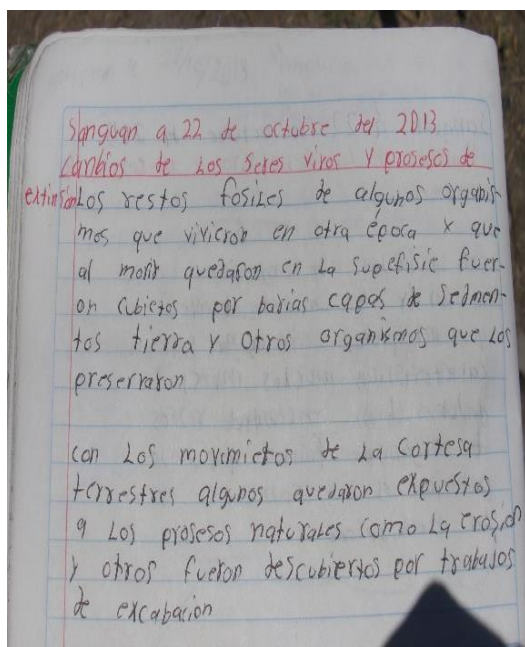 Sanguan a 22 de octubre del 2013
cambios de Los seres vivos y prosesos de
extinsion Los restos fosiles de algunos organis-
mos que vivieron en otra época y que
al morir quedaron en La supefisie fuer-
on cubietos por barias capas de sedmen-
tos tierra y otros organismos que Los
preservaron
con Los movimietos de La cortesa
terrestres algunos quedaron expuestos
a Los prosesos naturales como La erosion
y otros fueron descubiertos por trabajos
de excabacion